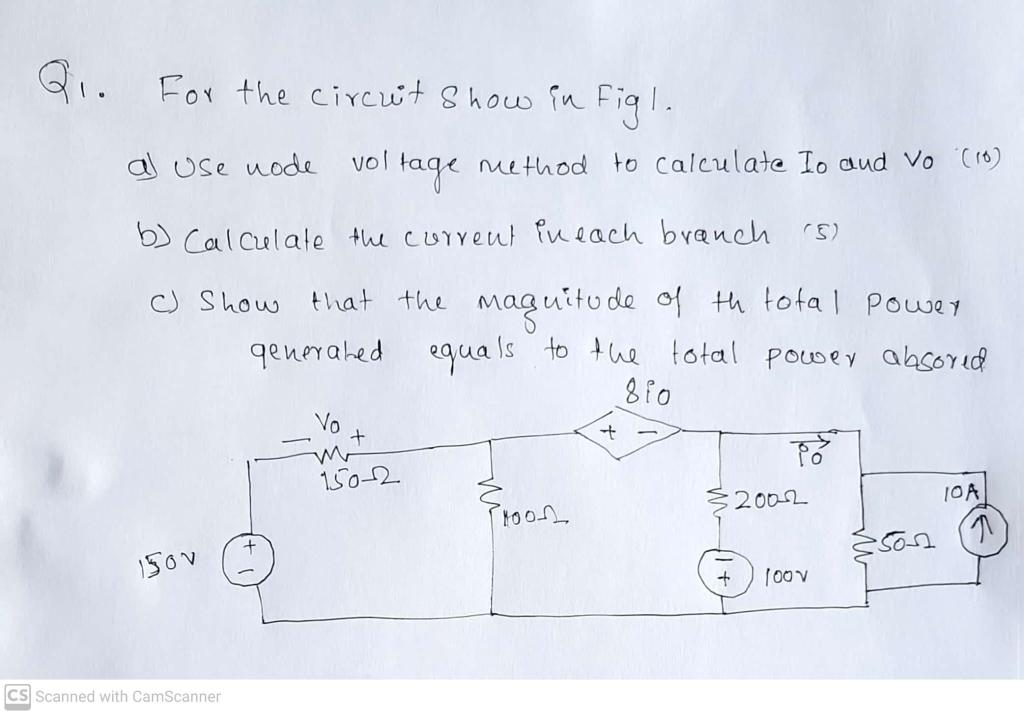 Q1. For the circuit Show in Fig 1.
a) Use node voltage method to calculate Io and Vo (10)
b) Calculate the current in each branch (5)
c) Show that the magnitude of th total power
generated equals to the total power absored
8io
Vo
- +
150Ω
+ -
io
100Ω
200Ω
10A
50Ω
150V
+
-
-
+
100V
CS Scanned with CamScanner